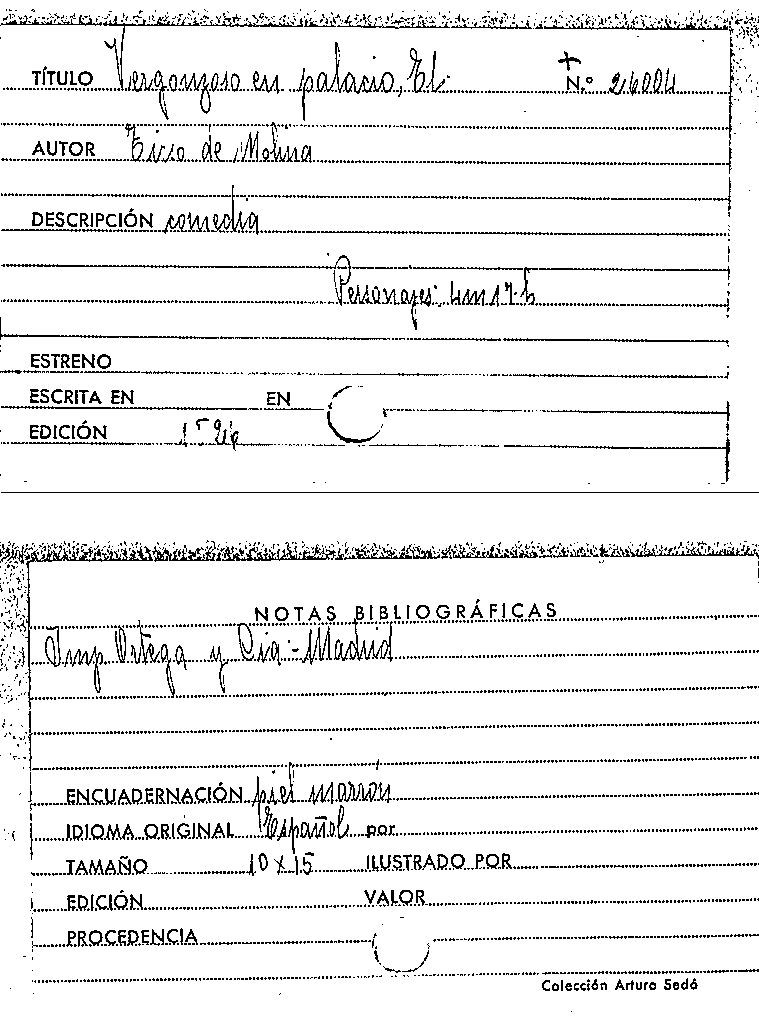 TÍTULO Vergonzoso en palacio, El. N.º 26004
AUTOR Tirso de Molina
DESCRIPCIÓN comedia
Personajes: 4m 17-h
ESTRENO
ESCRITA EN EN
EDICIÓN
NOTAS BIBLIOGRÁFICAS
Imp Ortega y Cia - Madrid
ENCUADERNACIÓN piel marrón
IDIOMA ORIGINAL Español por
TAMAÑO 10 x 15 ILUSTRADO POR
EDICIÓN VALOR
PROCEDENCIA
Colección Arturo Sedó